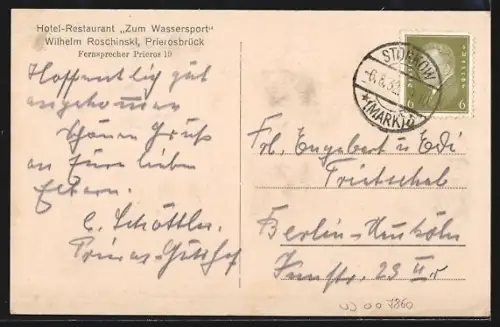 Hotel-Restaurant „Zum Wassersport“
Wilhelm Roschinski, Prierosbrück
Fernsprecher Prieros 19
Hoffentlich gut
angekommen
Schönen Gruß
an Eure lieben
Eltern.
E. Schöttler
Prieros-Gutshof
STORKOW
(MARK)
6 6
Frl. Engebert u Edi
Berlin-Neuköln
23 II r